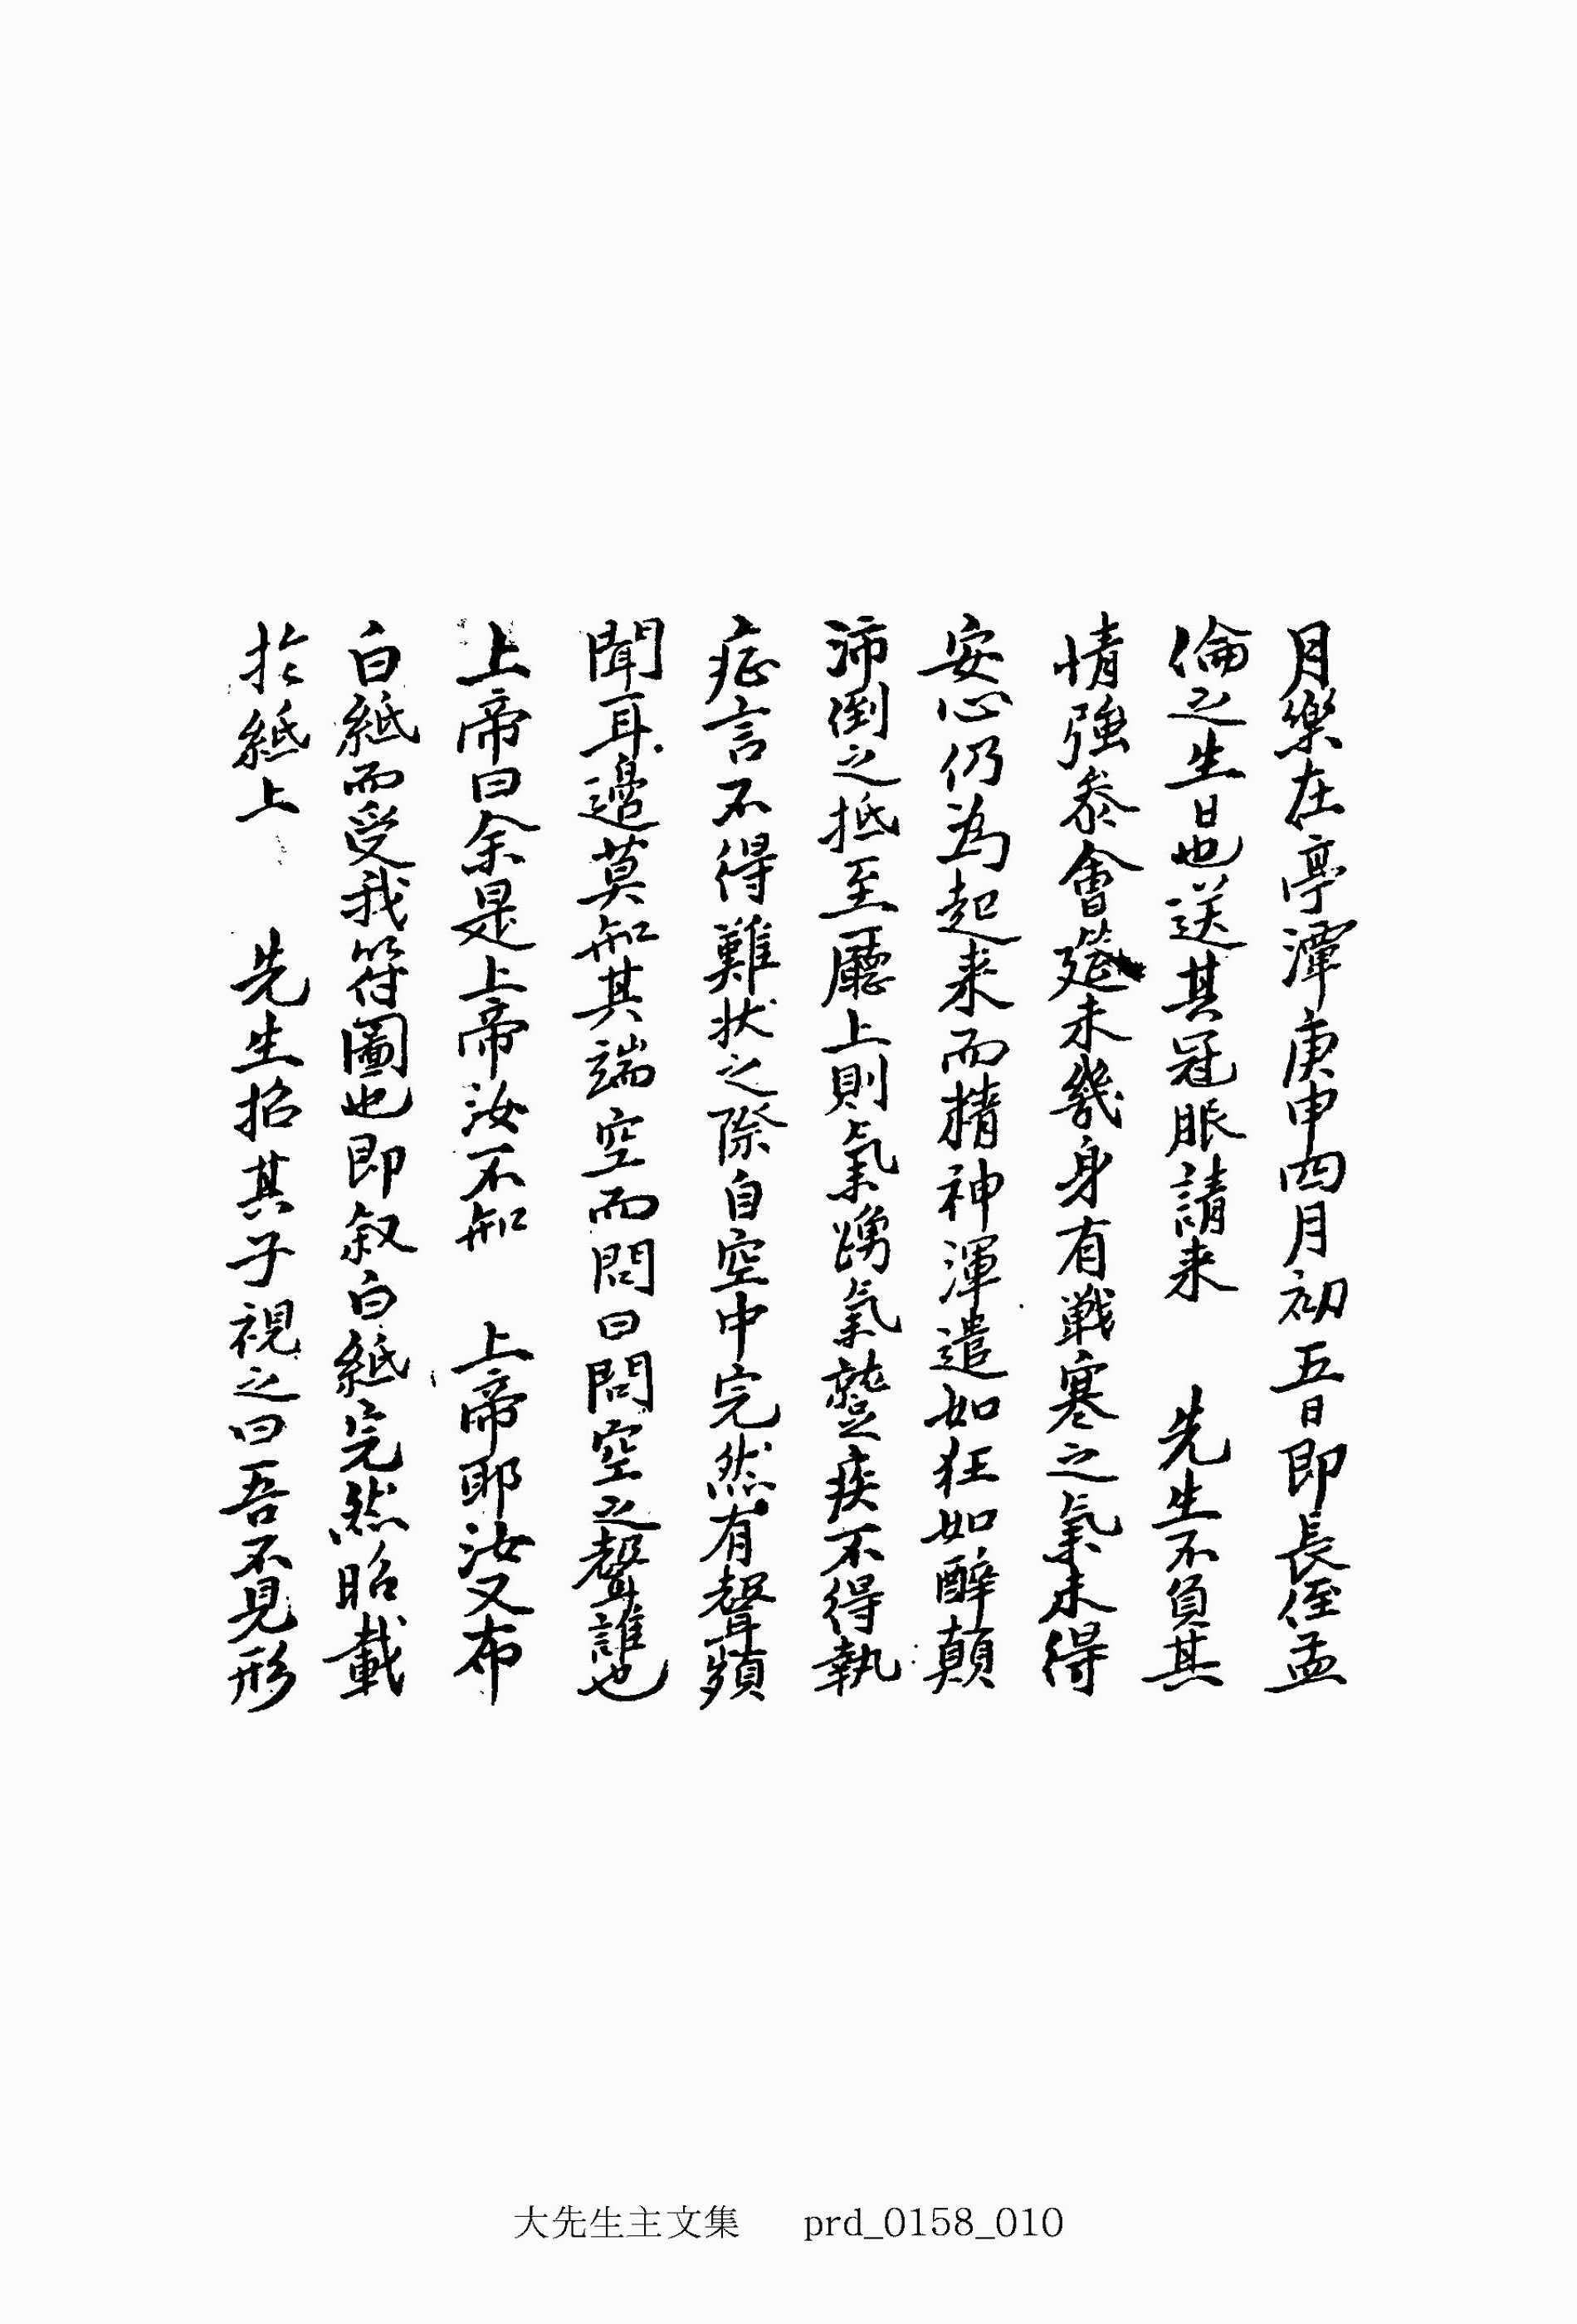 月樂在亭潭庚申四月初五日即長侄孟
倫之生日也送其冠服請来　先生不負其
情強叅會筵未幾身有戦寒之氣未得
安心仍為起来而精神渾遣如狂如醉顛
沛倒之抵至廳上則氣踴氣蹙疾不得執
症言不得難狀之際自空中完然有聲頻
聞耳邊莫知其端空而問曰問空之聲誰也
上帝曰余是上帝汝不知　上帝耶汝又布
白紙而受我符圖也即叙白紙完然昭載
扵紙上　先生招其子視之曰吾不見形
大先生主文集　prd_0158_010